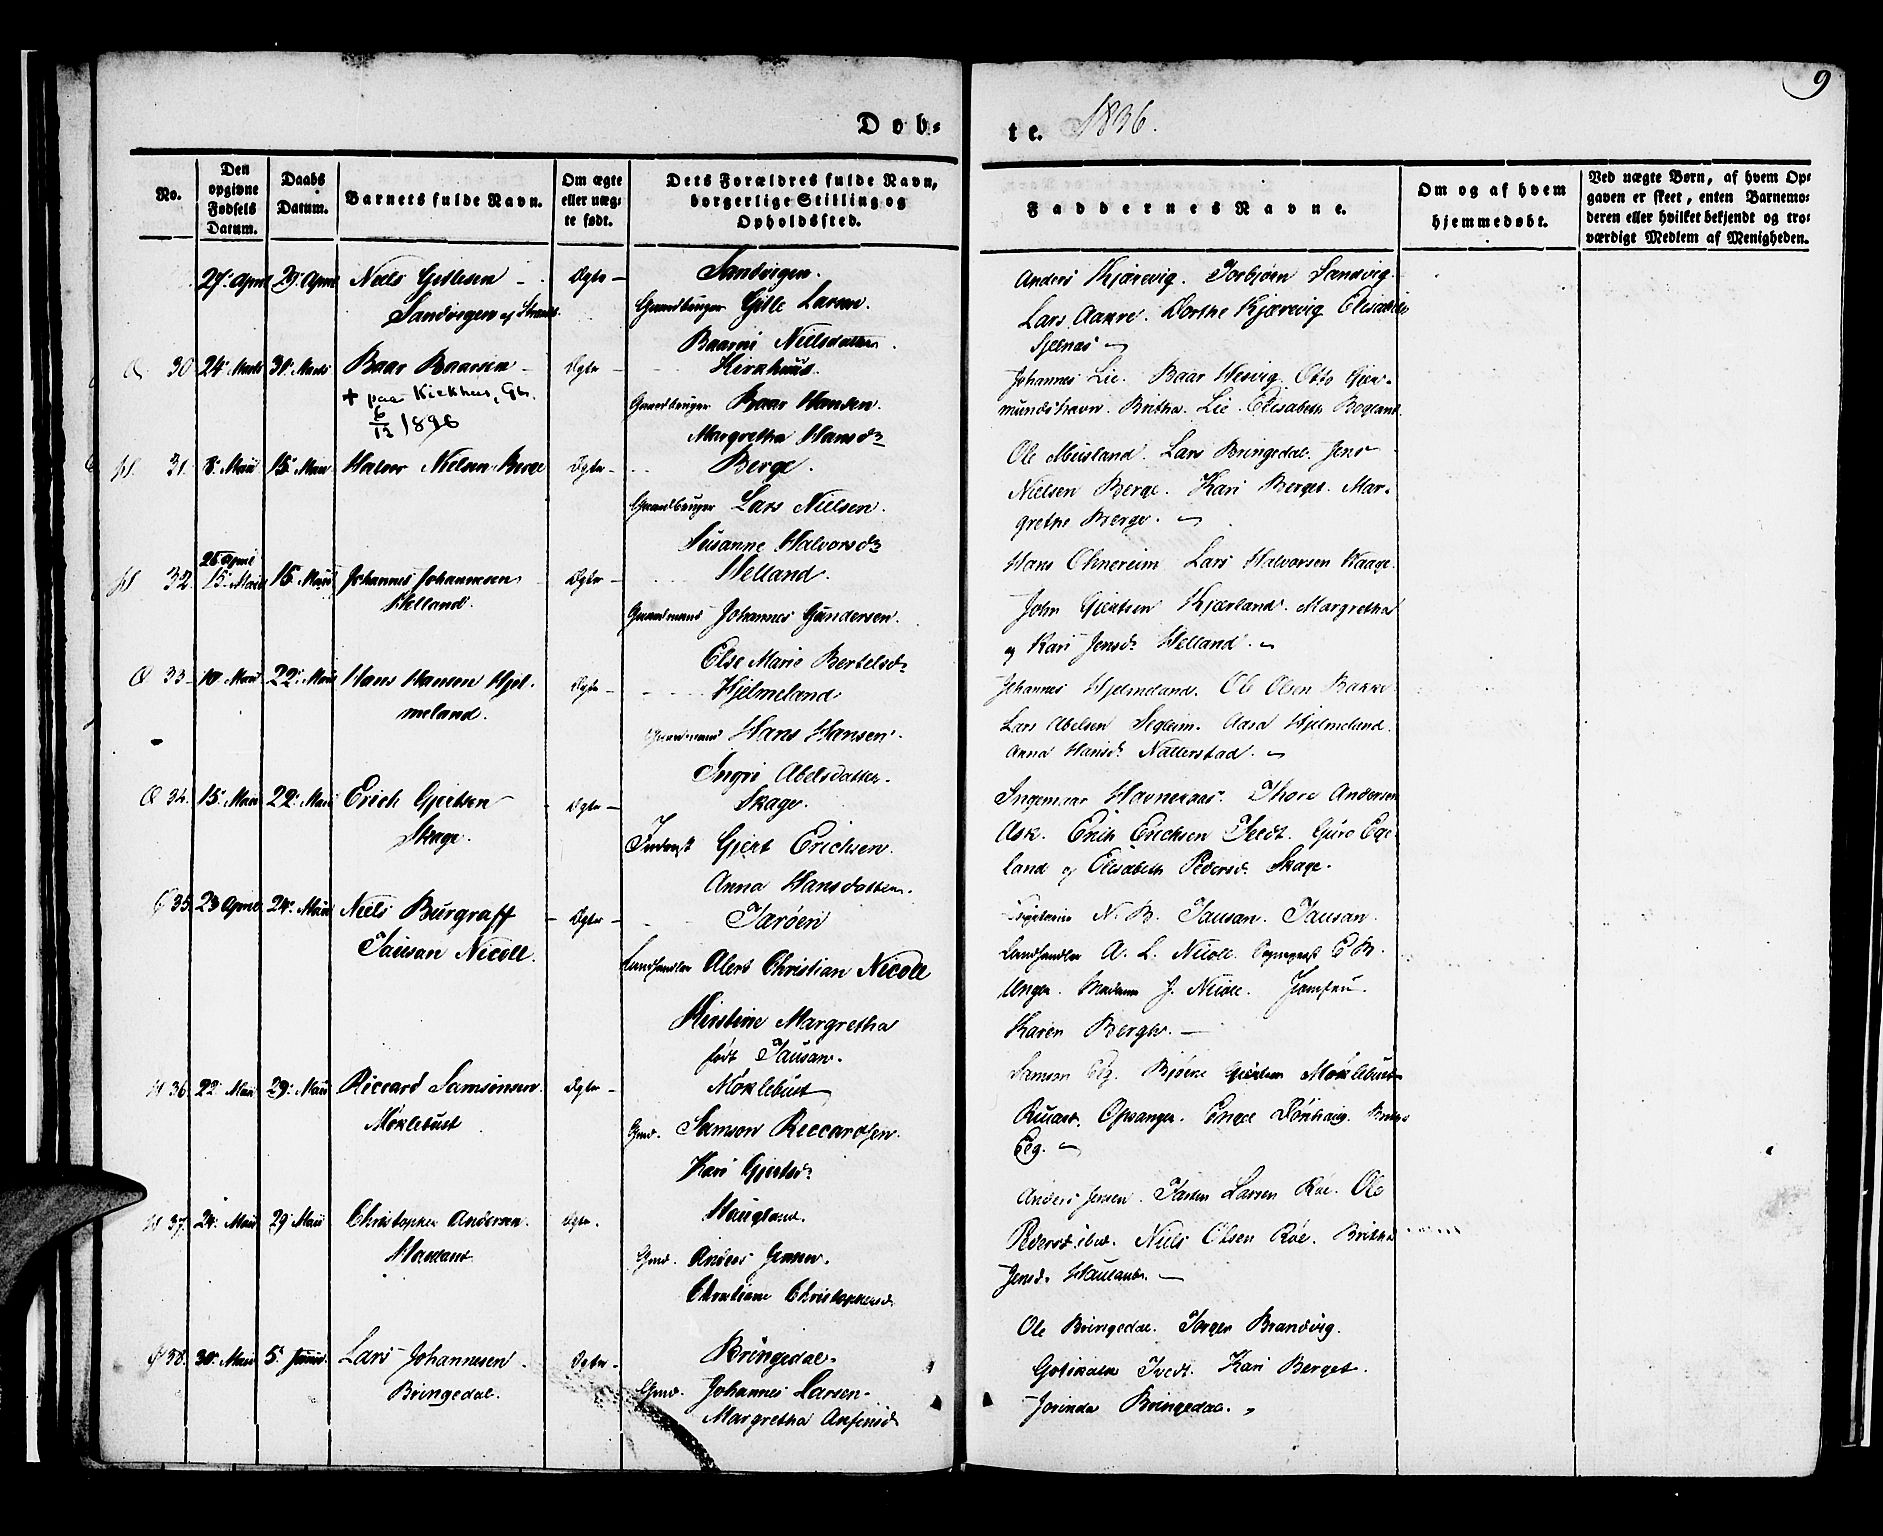 Døb-
te. 1836.
9
No.
Den opgivne Fødsels Datum.
Daabs Datum.
Barnets fulde Navn.
Om ægte eller uægte født.
Dets Forældres fulde Navn, borgerlige Stilling og Opholdssted.
Faddernes Navne.
Om og af hvem hjemmedøbt.
Ved uægte Børn, af hvem Opgaven er skeet, enten Barnemoderen eller hvilket bekjendt og troværdigt Medlem af Menigheden.
27. April 29. April Niels Gitlesen Ægte Sandvigen.
Sandvigen
Gaardbruger Gitle Larsen.
Baarni Nielsdatter.
Anders Kjærevig. Torbjørn Sandvig.
Lars Aakre. Dorthe Kjærevig
30 24. Marts 31. Marts Baar Baarsen Ægte Kirkhuus.
+ paa Kirkhus, Gb.
6/12 1896
Gaardbruger Baar Hansen.
Margretha Hansd.
Johannes Lie. Baar Wesvig. Otto Gjermundshavn.
Britha Lie. Elisabeth
31. 8. Maii 15. Maii Halvor Nielsen Berge Ægte Berge.
Gaardbruger Lars Nielsen.
Susanne Halvorsd.
Ole Meisland. Lars Bringedal. Jens
Nielsen Berge. Kari Berget. Margrethe
Berge.
26 April
32 15. Maii 15. Maii Johannes Johannesen Ægte Helland.
Helland.
Gaardmand Johannes Gundersen.
Else Marie Bertelsd.
Hans Omereim Lars Halvorsen Waage.
John Gjertsen Kjærland. Margretha
og Kari Jensd. Helland.
33 10. Maii 22. Maii Hans Hansen Hjelmeland. Ægte Hjelmeland
Gaardmand Hans Hansen.
Ingri Abelsdatter.
Johannes Hjelmeland. Ole Olsen Bakke
Lars Abelsen Segleim. Aasa Hjelmeland.
Anna Hansd. Natterstad.
34. 15. Maii 22. Maii Erich Gjertsen Ægte Skage.
Skage.
Inderst Gjert Erichsen.
Anna Hansdatter.
Ingemar Havneraas. Thore Andersen
Ask. Erich Erichsen Tvedt. Guro Egeland
og Elisabeth Pedersd. Skage.
35. 23 April 24. Maii Niels Burgraff Ægte Terøen
Tausan Nicoll.
Landhandler Alert Christian Nicoll
Kirstine Margretha
født Tausan.
N. B. Tausan. Tausan.
Landhandler A. L. Nicoll.
Unger. Madame J. Nicoll. Jomfru
Karen Bergh.
36. 22. Maii 29. Maii Riccard Samsonsen Ægte Møklebust
Møklebust
Gmd. Samson Riccardsen.
Kari Gjertsd.
Samson Eeg. Bjørne Gjertsen Møklebust
Opsanger.
Eeg.
37. 24. Maii 29 Maii Christopher Andersen. Ægte. Haugland.
Gmd. Anders Jensen.
Christiane Christophersd.
Anders Jensen. Larsen Røe. Ole
Niels Olsen Røe. Britha
Jensd.
38. 30. Maii 5. Junii. Lars Johannesen Ægte Bringedal.
Bringedal.
Gmd. Johannes Larsen.
Margretha
Ole Bringedal. Jørgen Brandvig.
Gotskalk Tvedt. Kari Berget.
Jorinda Bringedal.